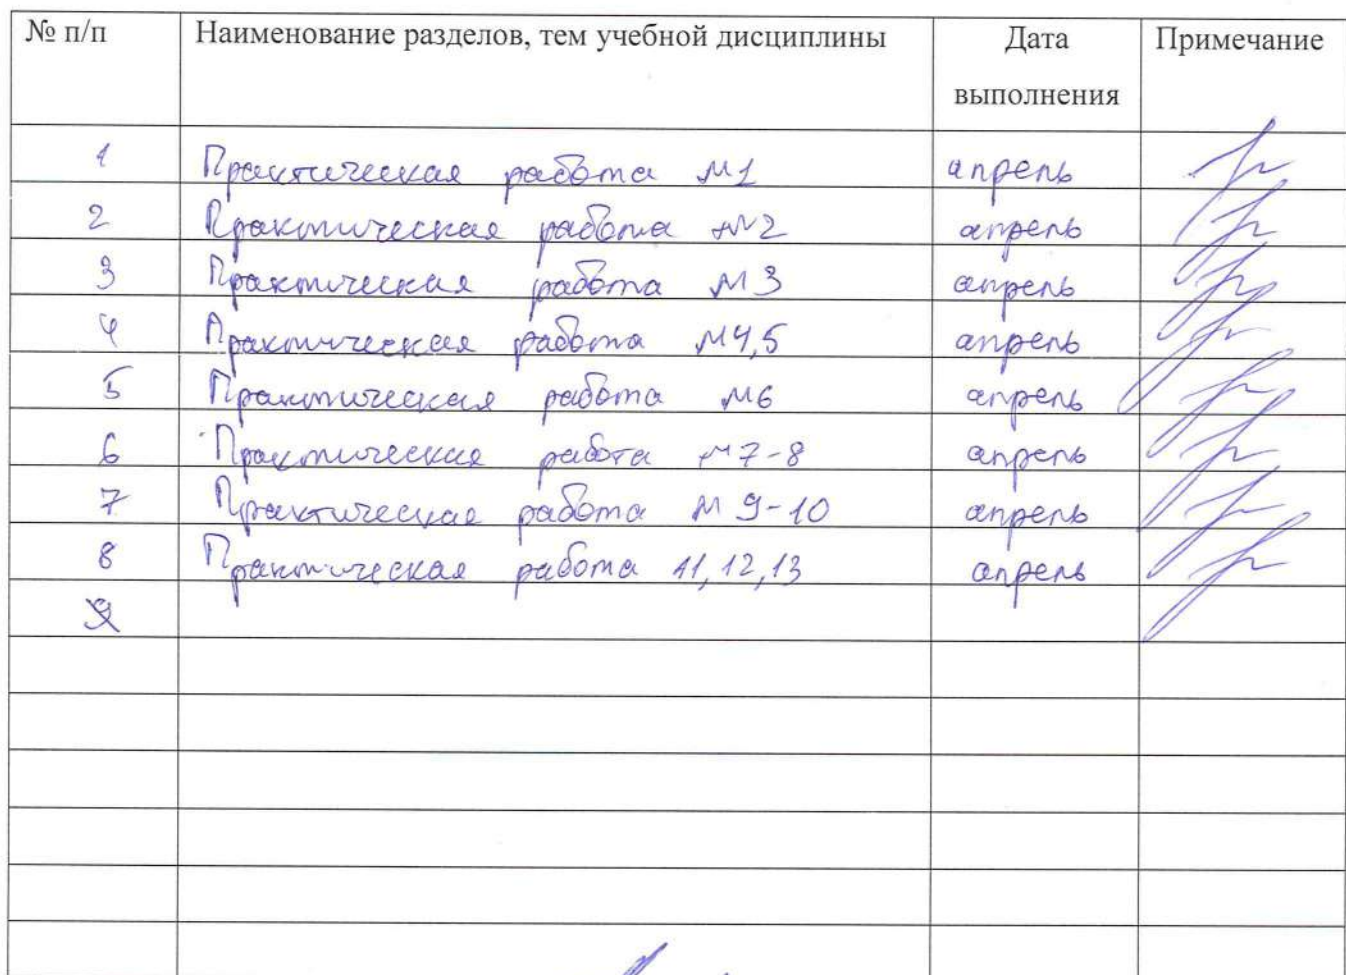 № п/п Наименование разделов, тем учебной дисциплины Дата выполнения Примечание
1 Практическая работа №1 апрель
2 Практическая работа №2 апрель
3 Практическая работа №3 апрель
4 Практическая работа №4,5 апрель
5 Практическая работа №6 апрель
6 Практическая работа №7-8 апрель
7 Практическая работа №9-10 апрель
8 Практическая работа 11,12,13 апрель
9